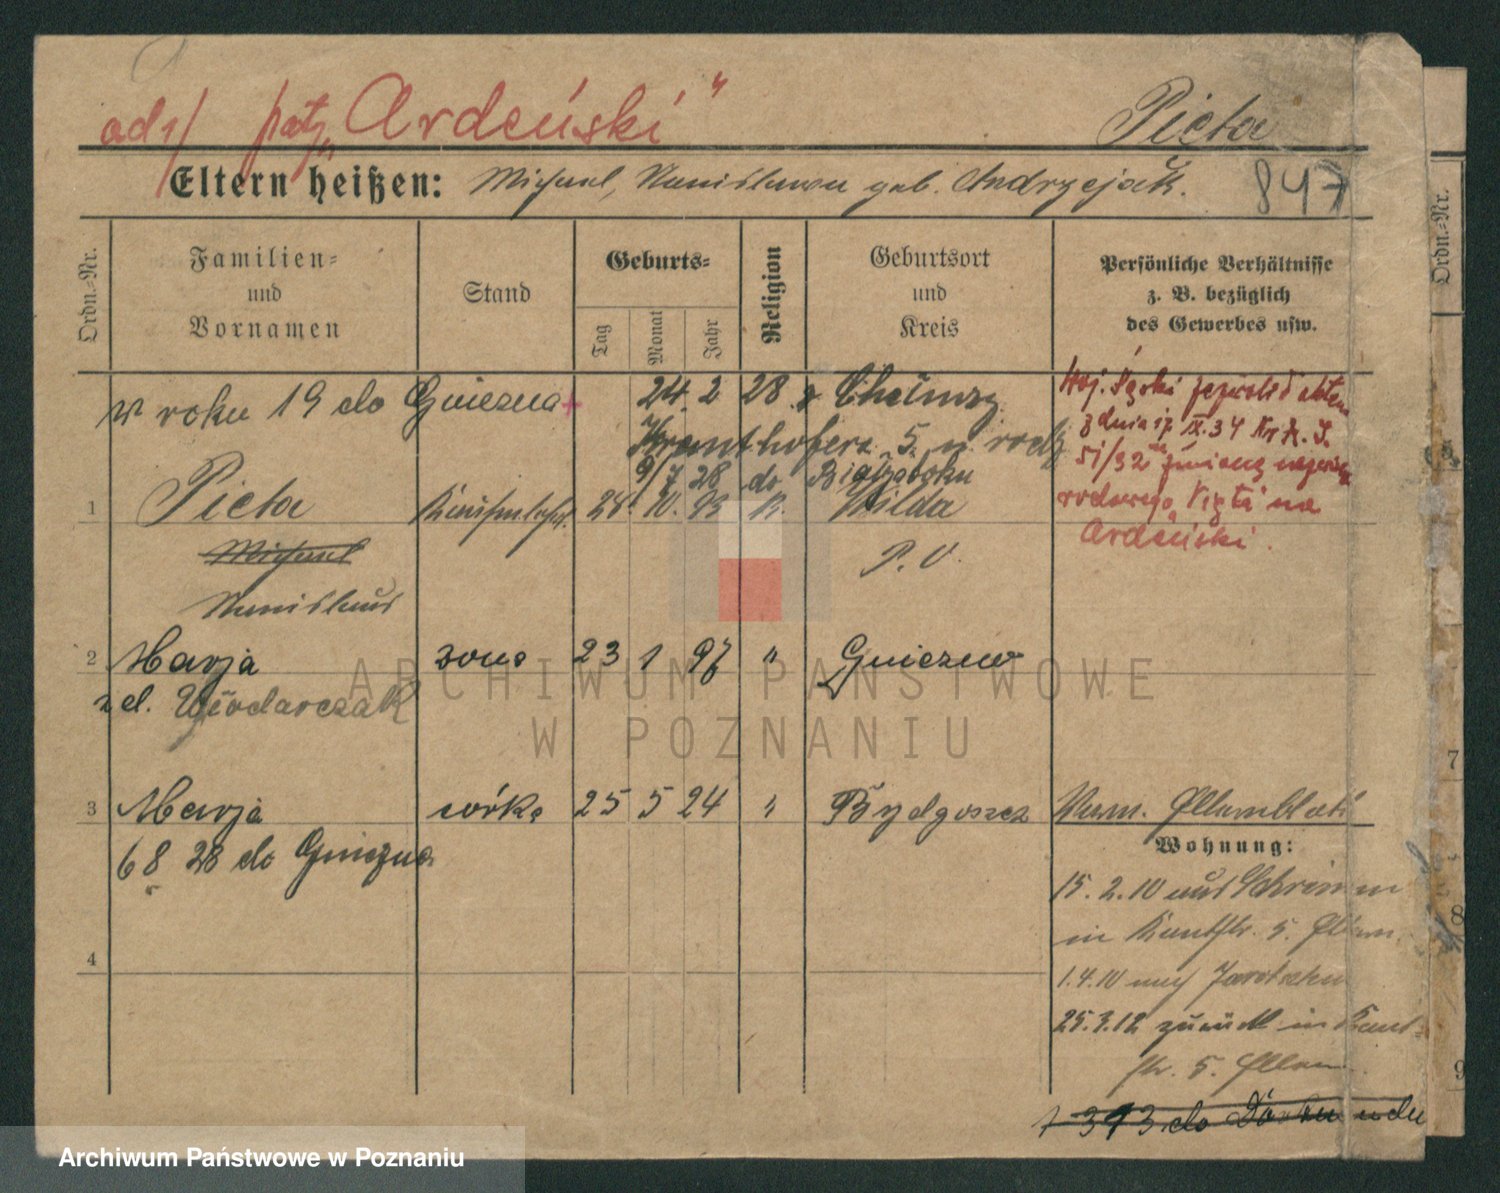 ad 1/ patz „Ardeński"
Pieta
Eltern heißen: Michael, Stanislawa geb. Andrzejak.
847
Ordn.-Nr.
Familien- und Vornamen
Stand
Geburts-
Tag
Monat
Jahr
Religion
Geburtsort und Kreis
Persönliche Verhältnisse z. B. bezüglich des Gewerbes usw.
Ordn.-Nr.
w roku 19 do Gniezna
24. 2 28 z Chełmży
5 u
9/7 28 do
Woj.
z dnia 17 IX. 34 Nr A. S.
51/32
rodowego „Pięta" na
Ardeński.
1 Pieta 28. 10. 93 K. Wilda
Michael
P. O.
Stanislaus
2 Marja żona 23 1 97 " Gniezno
z d. Włodarczak
3 Marja córka 25 5 24 " Bydgoszcz
6 8 28 do Gniezna
Wohnung:
15. 2. 10 aus Schrimm
in 5.
1. 4. 10 nach Jarotschin
25. 3. 12 zurück in Kant-
str. 5.
4
1 3 13 do
7
8
9
ARCHIWUM PAŃSTWOWE
W POZNANIU
Archiwum Państwowe w Poznaniu